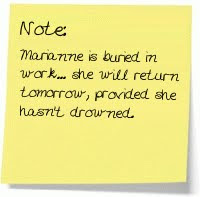 Note:
Marianne is buried in
work... she will return
tomorrow, provided she
hasn't drowned.